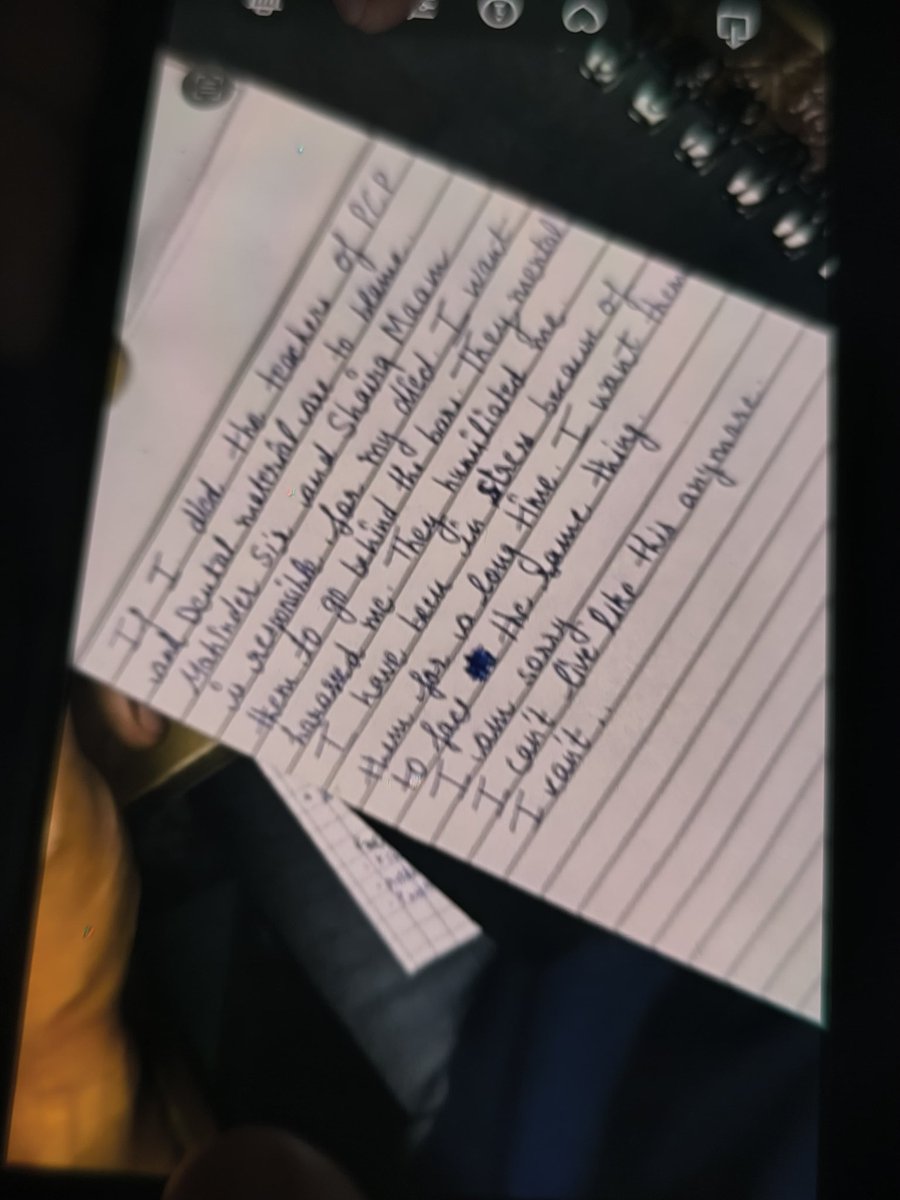 If I died the teachers of PCP
and Dental material are to blame.
Mahinder sir and Shairg Maam
is responsible for my died I want
them to go behind the bars. They mental
harassed me. They humiliated me
I have been in stress because of
them for a long time. I want them
to face the same thing
I am sorry
I can't live like this anymore.
I can't..